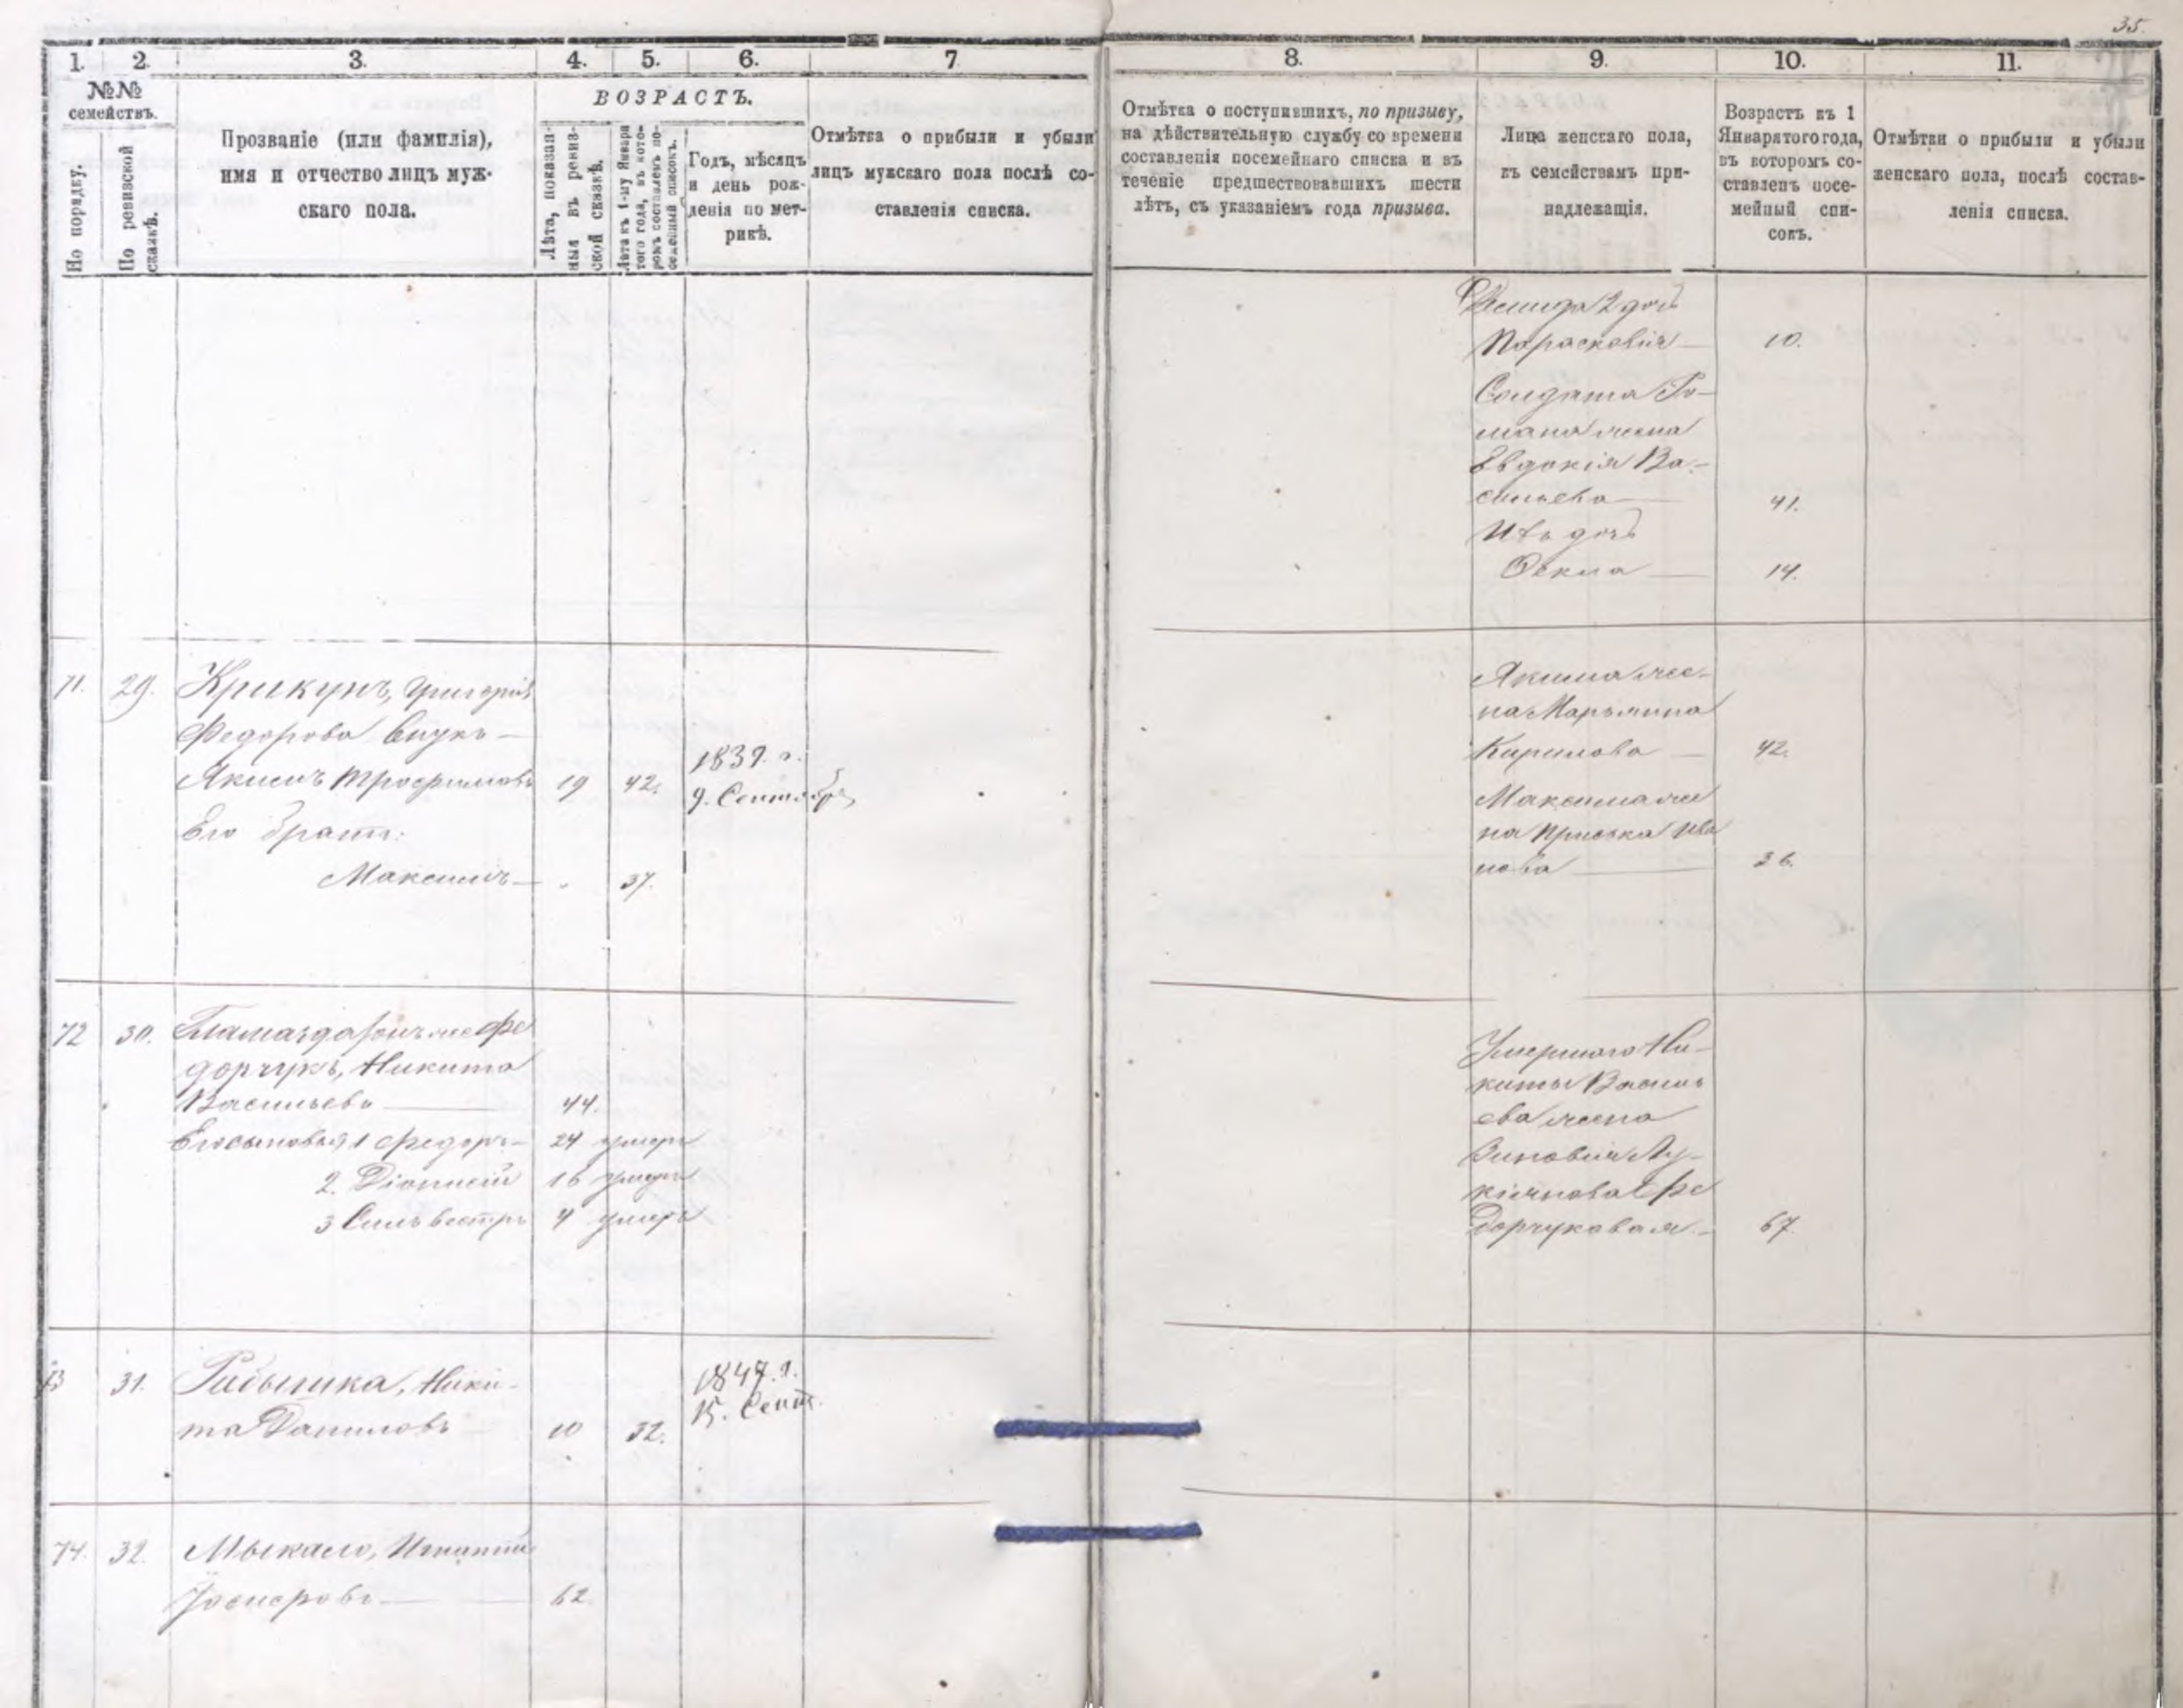 35.
1.
2.
3.
4.
5.
6.
7
8.
9.
10.
11.
№№
семействъ.
По порядку.
По ревизской
сказкѣ.
Прозваніе (или фамилія),
имя и отчество лицъ муж-
скаго пола.
ВОЗРАСТЪ.
Лѣта, показан-
ныя въ ревиз-
ской сказкѣ.
Лѣта къ 1-му Января
того года, въ кото-
ромъ составленъ по-
семейный списокъ.
Годъ, мѣсяцъ
и день рож-
денія по мет-
рикѣ.
Отмѣтка о прибыли и убыли
лицъ мужскаго пола послѣ со-
ставленія списка.
Отмѣтка о поступившихъ, по призыву,
на дѣйствительную службу со времени
составленія посемейнаго списка и въ
теченіе предшествовавшихъ шести
лѣтъ, съ указаніемъ года призыва.
Лица женскаго пола,
къ семействамъ при-
надлежащія.
Возрастъ къ 1
Января того года,
въ которомъ со-
ставленъ посе-
мейный спи-
сокъ.
Отмѣтки о прибыли и убыли
женскаго пола, послѣ состав-
ленія списка.
2 дочь
Параскевія 10.
Солдата Ро-
мана жена
Евдокія Ва-
сильева 41.
Ихъ дочь
Фекла 14.
71. 29. Крикунъ, Григорій
Федорова внукъ
Якимъ Трофимовъ 19 42. 1839. г.
9. Сентября
Его братъ:
Максимъ 37.
Якима же-
на Марьянна
Кирилова 42.
Максима же
на Приська Ива
нова 36.
72 30. Федорчукъ, Никита
Васильевъ 44.
Его сыновья 1 Федоръ 24 умеръ
2. Діонисій 16 умеръ
3 Сильвестръ 4 умеръ
Умершаго Ни-
киты Василь
ева жена
Зиновія Лу-
кіянова Фе
дорчуковая 67.
73 31. Рабышка, Ники-
та Даниловъ 10 32. 1847. г.
15. Сент.
74. 32. Мыкало, Игнатій
Іосифовъ 62.